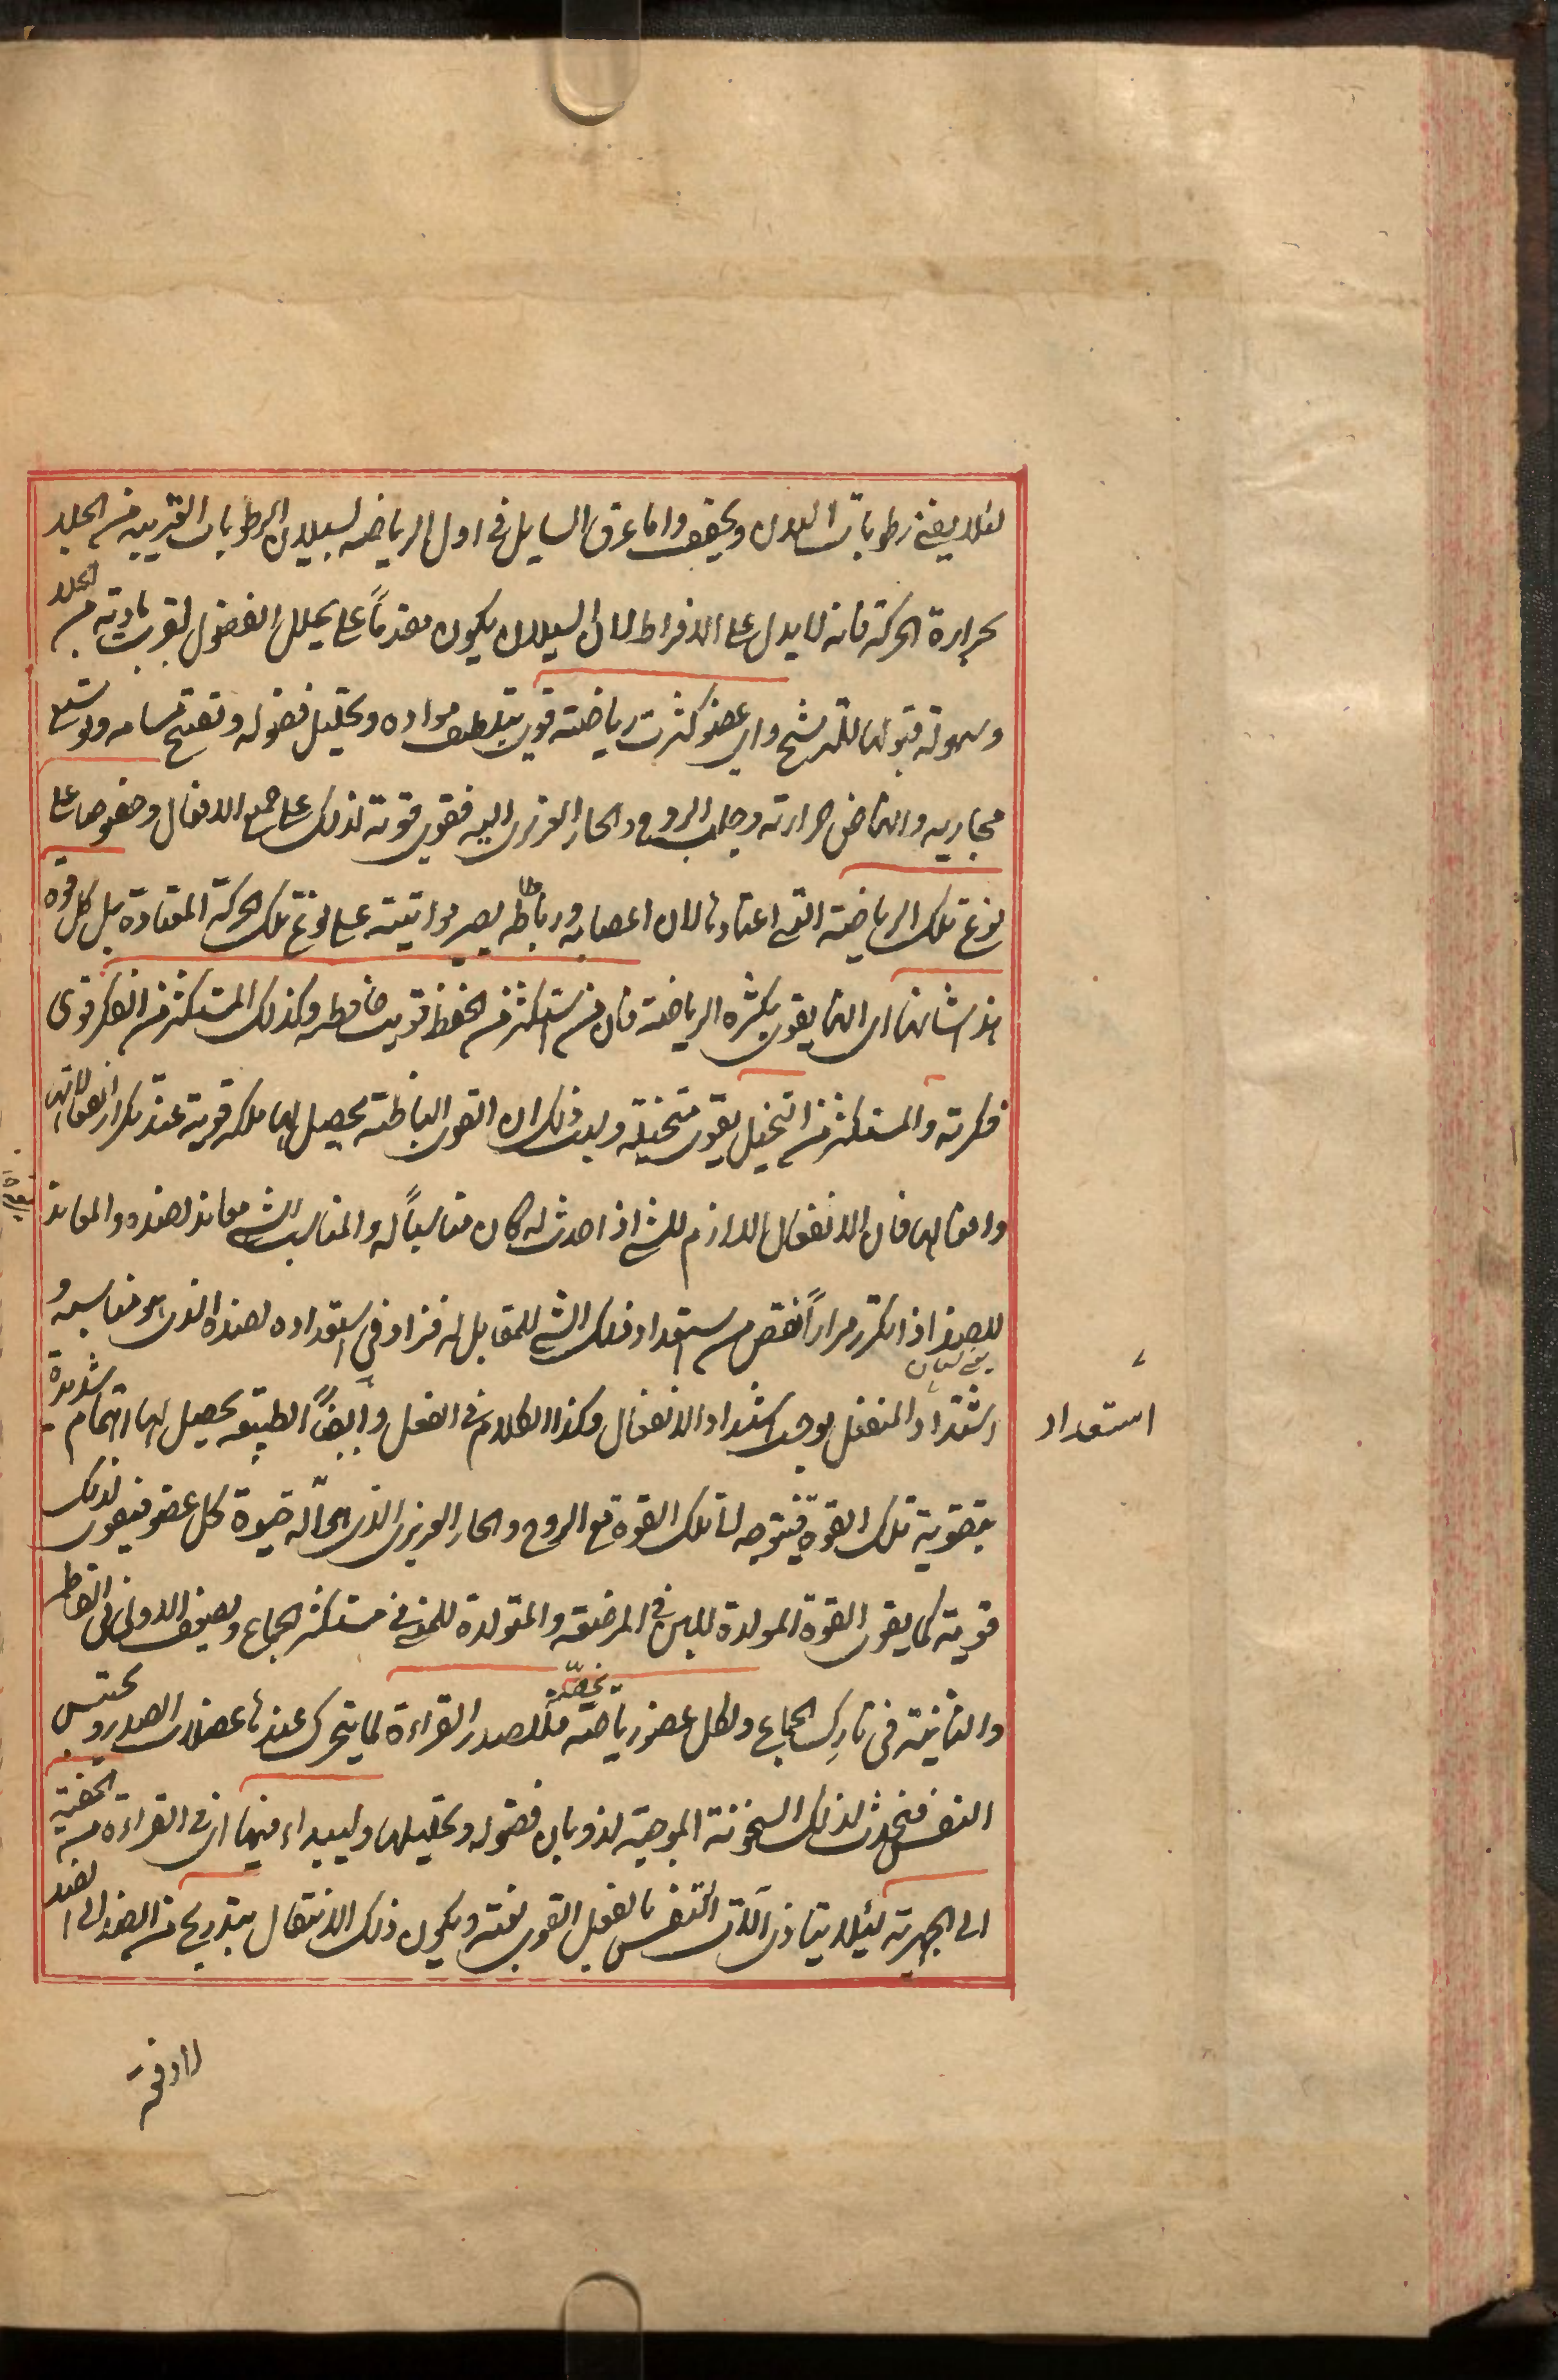 لئلا يفنى رطوبات البدن ويجفف واما عرق السايل فى اول الرياضه لسيلان الرطوبات القريبه من الجلد
بحرارة الحركة فانه لا يدل على الافراط لان السيلان يكون مقدماً على تحلل الفضول لقرب مادته من الجلد
وسهولة قبولها للترشح واى عضو كثرت رياضته قوى بتلطيف مواده وتحليل فضوله وتفتح مسامه وتوسيع
مجاريه وانتعاض حرارته وجلب الروح والحار الغريزى اليه فقوى قوته لذلك على جميع الافعال وخصوصا على
نوع تلك الرياضة التى اعتادها لان اعصابه ورباطاطه يصير مواتيته على نوع تلك الحركة المعتادة بل كل قوة
هذا شانها اى انها يقوى بكثره الرياضة فان من استكثر من الحفظ قويت حافظه وكذلك المستكثر من الفكر قوى
فكرته والمستكثر من التخيل يقوى متخيله وبعد ذلك ان القوى الباطنة يحصل لها ملكه قوية عند تكرار انفعالاتها
وافعالها فان الانفعال اللازم للشى اذا حدث له كان مناسباً له والمناسب للشى معاند لضده والمعاند
للضد اذا تكرر مراراً نقص من استعداد ذلك الشى للمقابل له فزاد فى استعداده لضده الذى هو مناسبه و
اشتداد المنفعل يوجب اشتداد الانفعال وكذا الكلام فى الفعل وايضاً الطبيعه يحصل لها اهتمام شديدة
استعداد
بتقوية تلك القوة فيتوجه لها تلك القوة مع الروح والحار الغريزى الذى هو آلة حيوة كل عضو فيقوى لذلك
قوية كما يقوى القوة المولدة للبن فى المرضعه والمتولدة للمنى فى مستكثر الجماع ويضعف الاولى فى الفاطم
والثانية فى تارك الجماع ولكل عضو رياضة تخصّه مثلا للصدر القراءة لما يتحرك عندها عضلات الصدر ويحتبس
النفس فيحدث لذلك السخونة الموجبة لذوبان فضوله وتحليلها وليبداء فيها اى فى القراءة من الخفية
الى الجهرية ليئلا يتاذى آلات التنفس بالفعل القوى بغتة ويكون ذلك الانتقال بتدريج من الضد الى الضد
لا دفعة